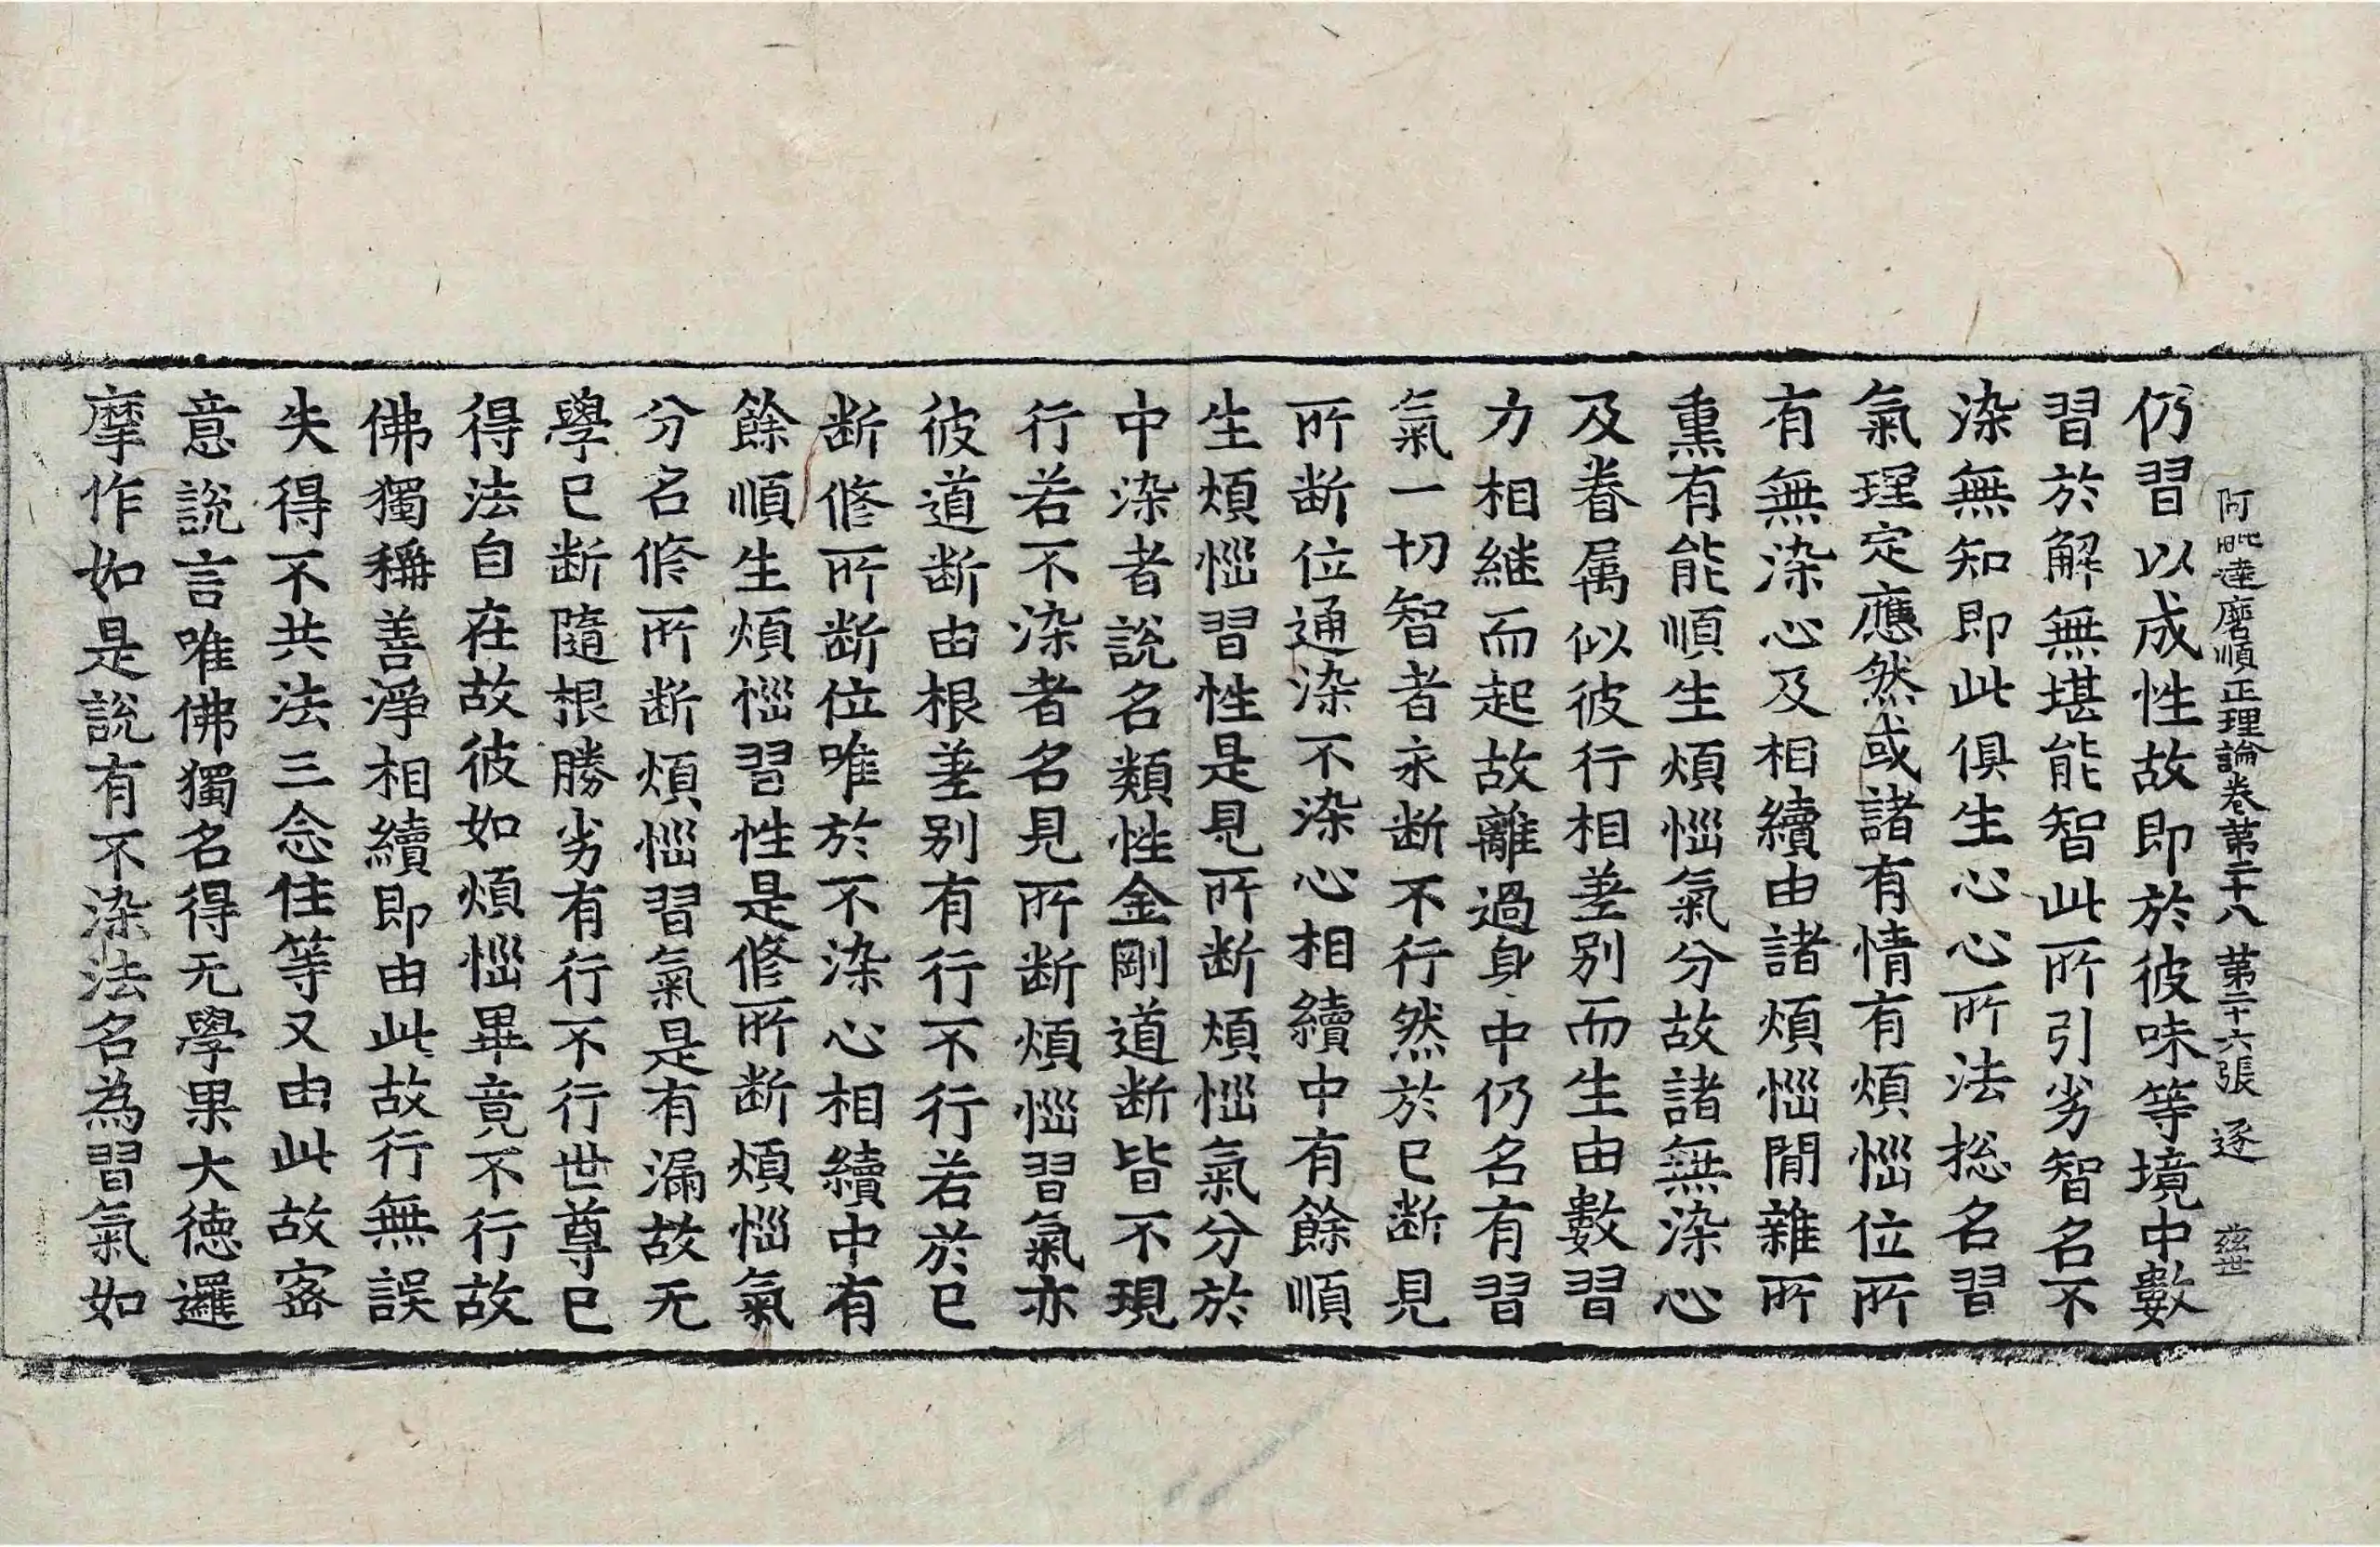 阿毗達磨順正理論卷第二十八 第二十六張 逐 慈世
仍習以成性故即於彼味等境中數
習於解無堪能智此所引劣智名不
染無知即此俱生心心所法総名習
氣理定應然或諸有情有煩惱位所
有無染心及相續由諸煩惱閒雜所
熏有能順生煩惱氣分故諸無染心
及眷属似彼行相差别而生由數習
力相継而起故離過身中仍名有習
氣一切智者永断不行然於已断見
所断位通染不染心相續中有餘順
生煩惱習性是見所断煩惱氣分於
中染者說名類性金剛道断皆不現
行若不染者名見所断煩惱習氣亦
彼道断由根差别有行不行若於已
断修所断位唯於不染心相續中有
餘順生煩惱習性是修所断煩惱氣
分名修所断煩惱習氣是有漏故无
學已断隨根勝劣有行不行世尊已
得法自在故彼如煩惱畢竟不行故
佛獨稱善淨相續即由此故行無誤
失得不共法三念住等又由此故密
意說言唯佛獨名得无學果大德邏
摩作如是說有不染法名為習氣如